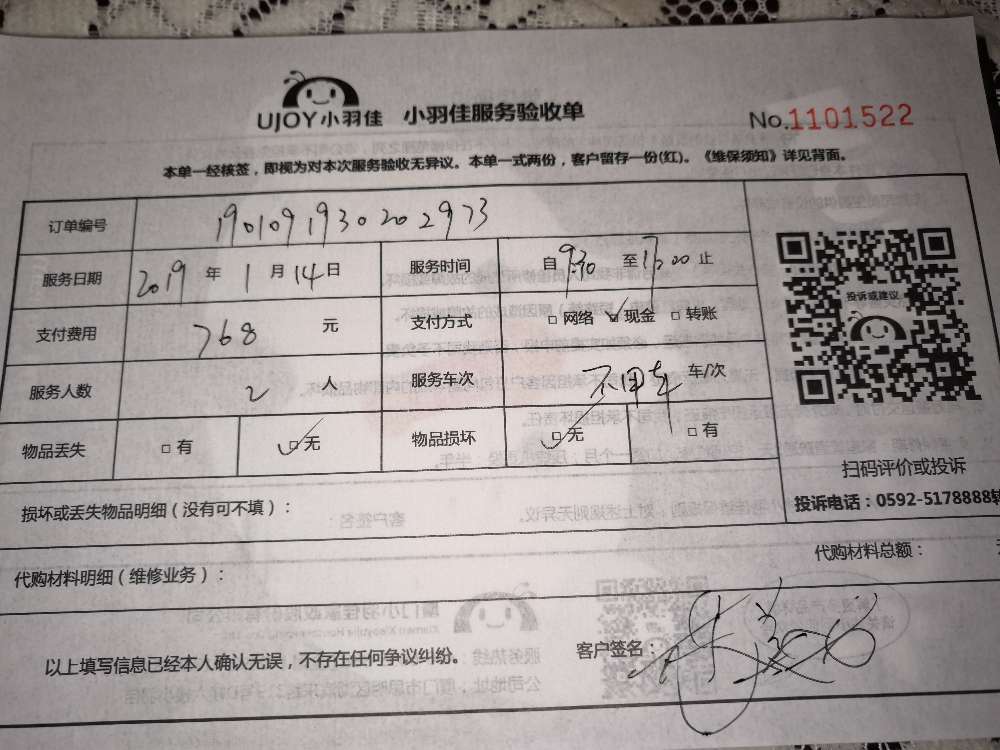 UJOY小羽佳 小羽佳服务验收单 No.1101522
本单一经核签，即视为对本次服务验收无异议。本单一式两份，客户留存一份(红)。《维保须知》详见背面。
订单编号 1901091930202973
服务日期 2019 年 1 月 14 日 服务时间 自 9:30 至 17:00 止
支付费用 768 元 支付方式 □ 网络 □ 现金 □ 转账
服务人数 2 人 服务车次 不用车 车/次
物品丢失 □ 有 □ 无 物品损坏 □ 无 □ 有
投诉或建议
扫码评价或投诉
投诉电话：0592-5178888转
损坏或丢失物品明细（没有可不填）：
代购材料明细（维修业务）： 代购材料总额：
以上填写信息已经本人确认无误，不存在任何争议纠纷。 客户签名：